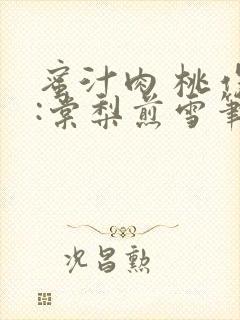 蜜汁肉桃作
:棠梨煎雪筆
况昌勲